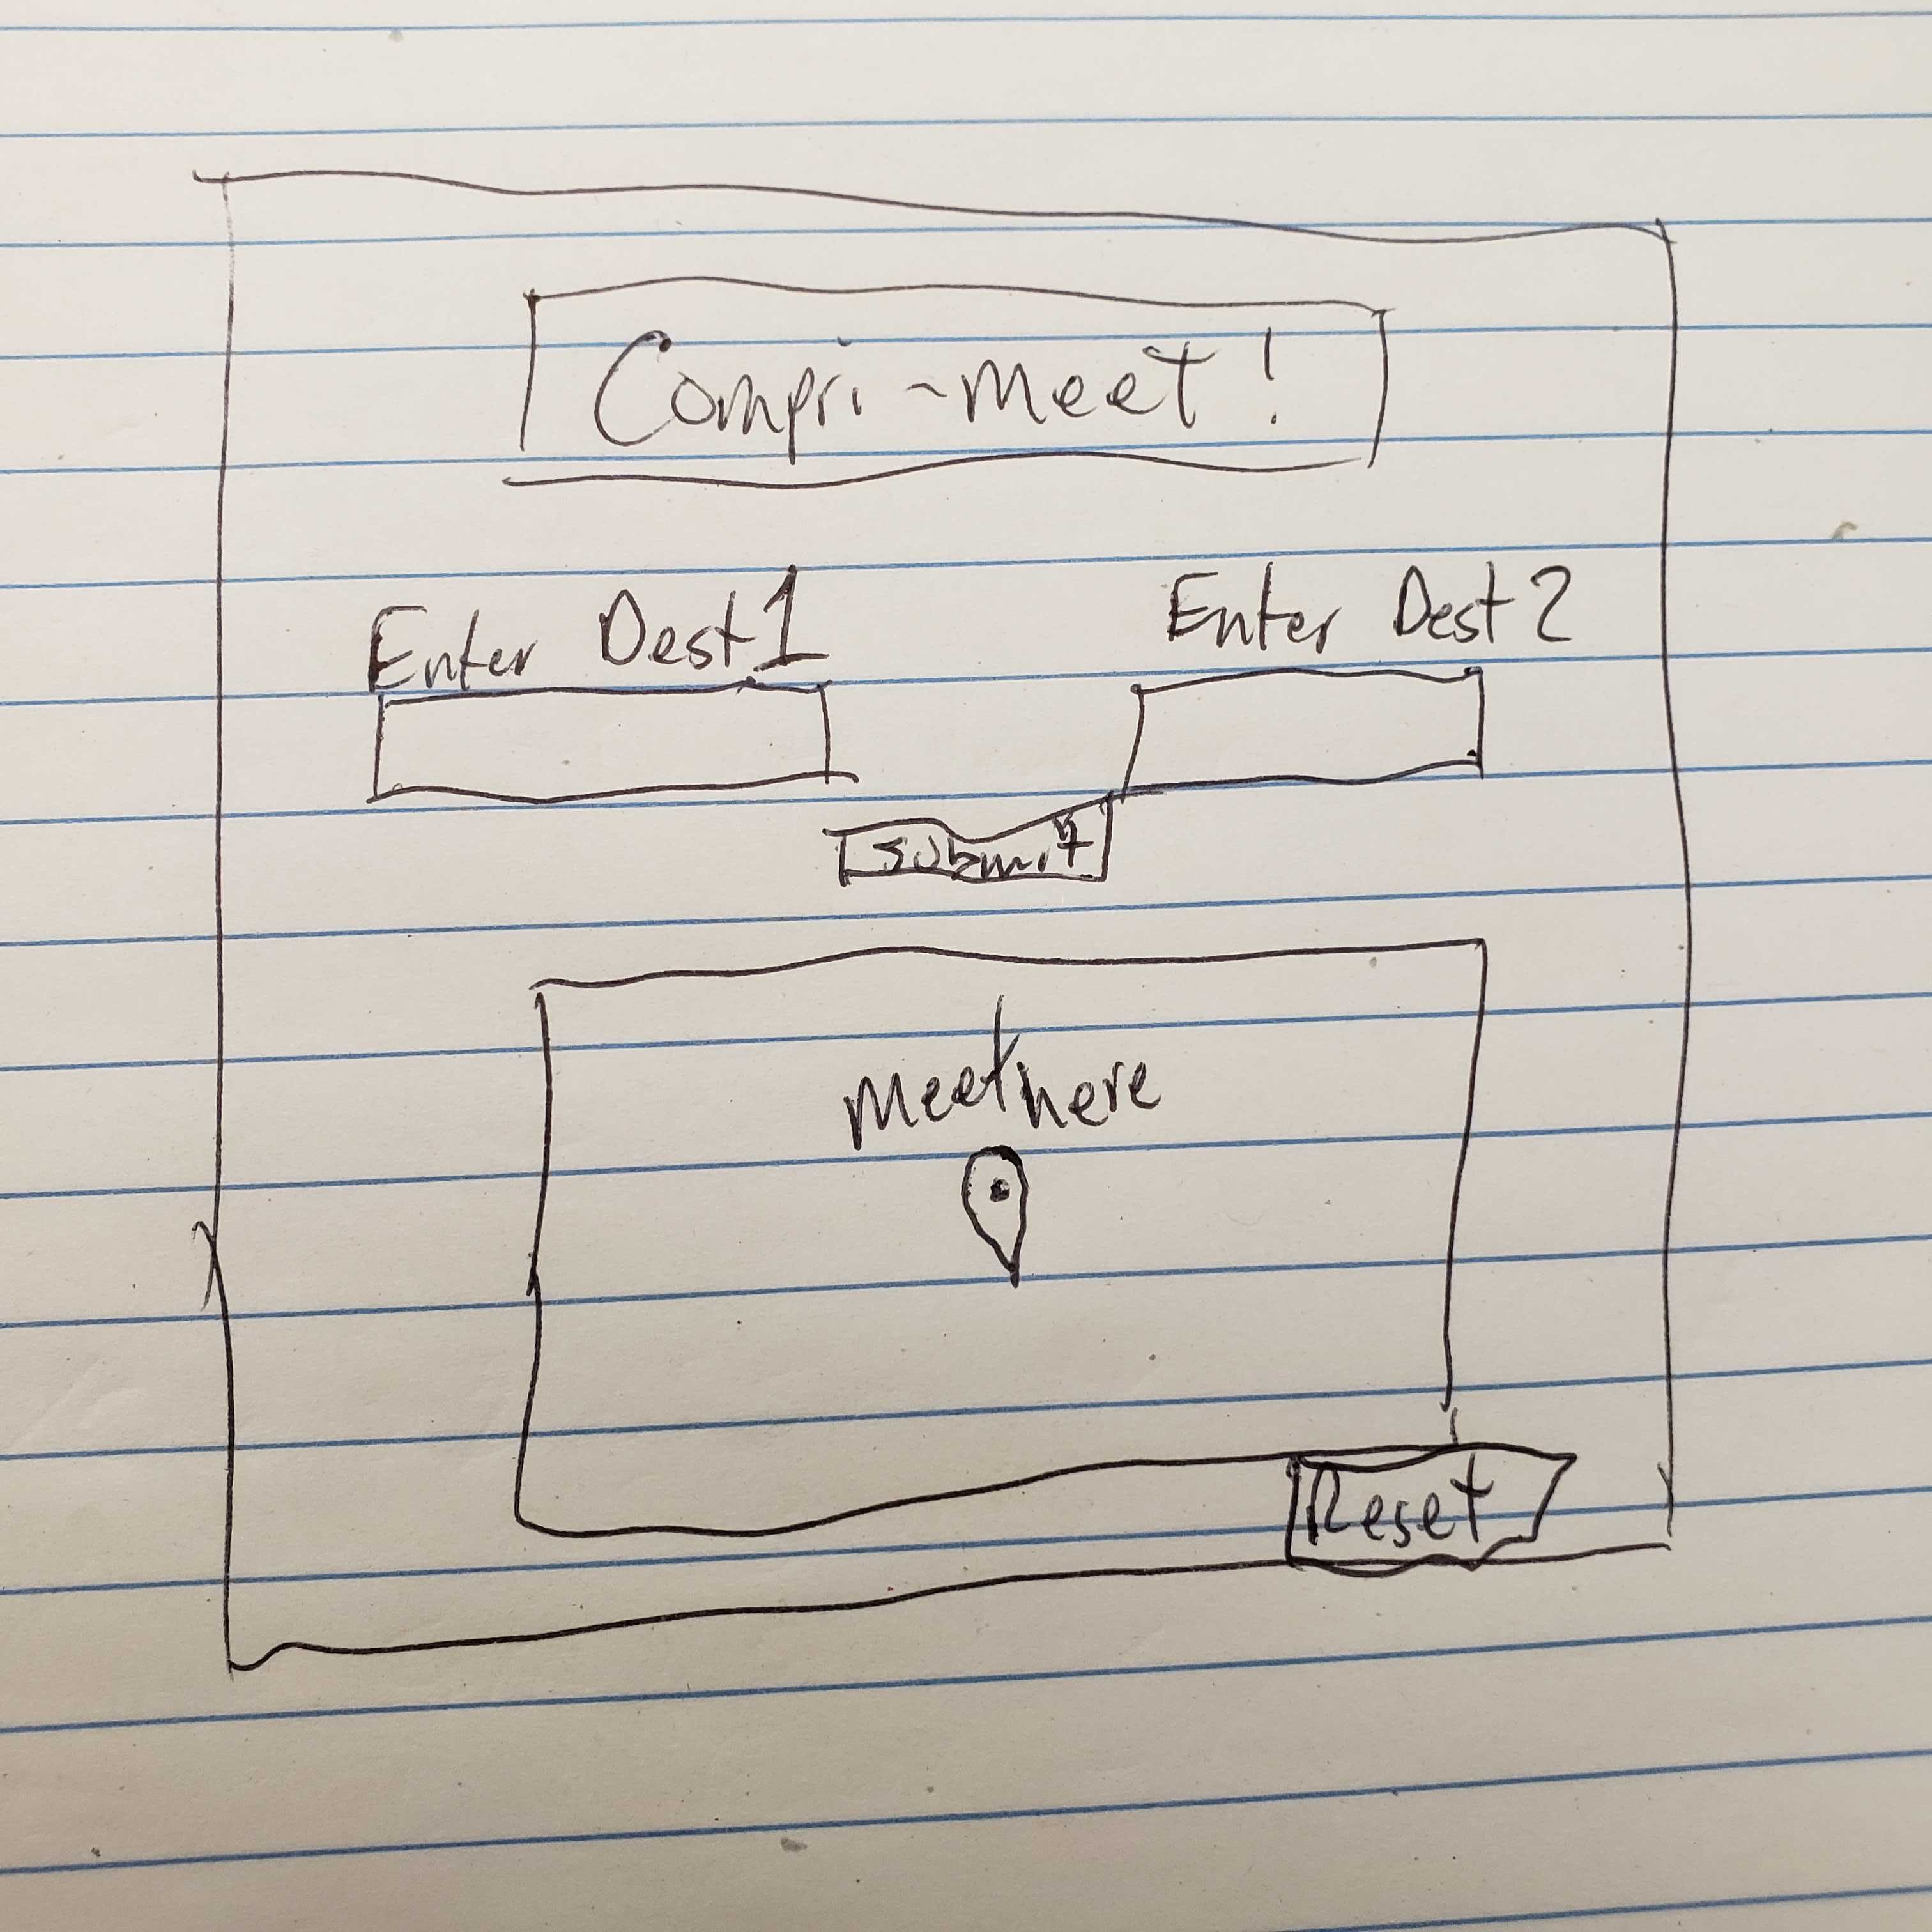 Compri-meet!
Enter Dest 1
Enter Dest 2
Submit
Meet here
Reset